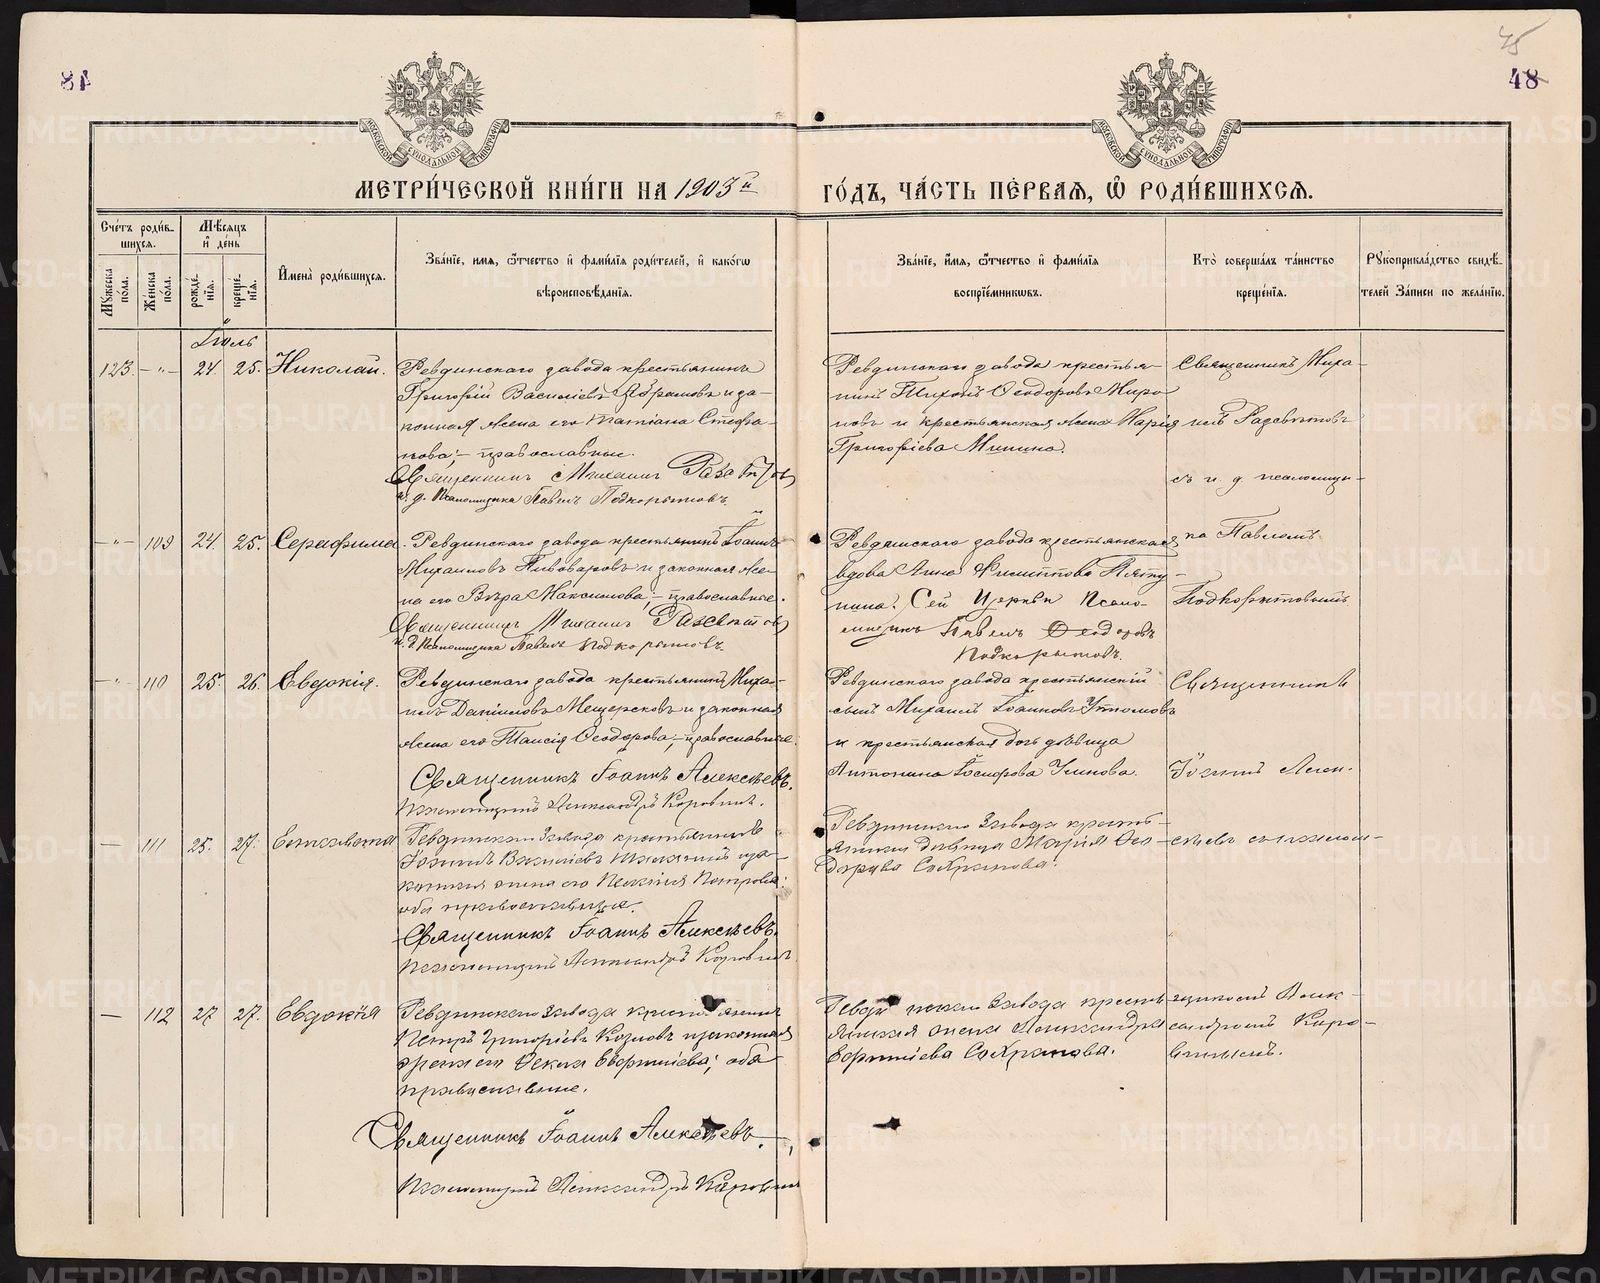 48
48
МЕТРИЧЕСКОЙ КНИГИ НА 1903й ГОДЪ, ЧАСТЬ ПЕРВАЯ, Ѡ РОДИВШИХСЯ.
Счетъ родившихся.
Мужеска пола.
Женска пола.
Мѣсяцъ и день
рожденія.
крещенія.
Имена родившихся.
Званіе, имя, ѿчество и фамилія родителей, и какогѡ
вѣроисповѣданія.
Званіе, имя, ѿчество и фамилія
воспріемниковъ.
Кто совершалъ таинство
крещенія.
Рукоприкладство свидѣ-
телей записи по желанію.
Іюль
123. 24. 25. Николай.
Ревдинскаго завода крестьянинъ
Григорій Василіевъ и за-
конная жена его Татіана Стефа-
нова; православные.
Священникъ Михаилъ
и. д. Псаломщика Павелъ Подкорытовъ.
Ревдинскаго завода крестья-
нинъ Тихонъ Ѳеодоровъ Миро
новъ и крестьянская жена Марія
Григоріева Минина.
Священникъ Миха-
илъ
съ и. д псаломщи-
109 24. 25. Серафима.
Ревдинскаго завода крестьянинъ Іоаннъ
Михаиловъ Пивоваровъ и законная же-
на его Вѣра Максимова; православные.
Священникъ Михаилъ
и. д Псаломщика Павелъ Подкорытовъ.
Ревдинскаго завода крестьянская
вдова Анна Филиппова
Сей Церкви Псало-
мщикъ Павелъ Ѳеодоровъ
Подкорытовъ.
ка Павломъ
Подкорытовымъ
110 25. 26. Евдокія.
Ревдинскаго завода крестьянинъ Миха-
илъ Даніиловъ Мещерсковъ и законная
жена его Таисія Ѳеодорова; православные.
Священникъ Іоаннъ Алексѣевъ.
Псаломщикъ Александръ Коровинъ.
Ревдинскаго завода крестьянскій
сынъ Михаилъ Іоанновъ Утюмовъ
и крестьянская дочь дѣвица
Антонина Іосифова
Священникъ
Іоаннъ Алек-
111 25. 27. Елизавета
Ревдинскаго Завода крестьянинъ
Василіевъ и за-
конная жена его Петрова:
оба православные.
Священникъ Іоаннъ Алексѣевъ.
Псаломщикъ Александръ Коровинъ
Ревдинскаго Завода кресть-
янская дѣвица Марія Ѳео-
дорова
сѣевъ съ псалом-
112 27 27. Евдокія
Ревдинскаго Завода крестьянинъ
Петръ Григоріевъ Козловъ и законная
жена его Ѳекла Евфиміева; оба
православные.
Священникъ Іоаннъ Алексѣевъ.
Псаломщикъ Александръ Коровинъ
Ревдинскаго Завода кресть-
янская жена Александра
Евфиміева
щикомъ Алек-
сандромъ Коро-
винымъ.